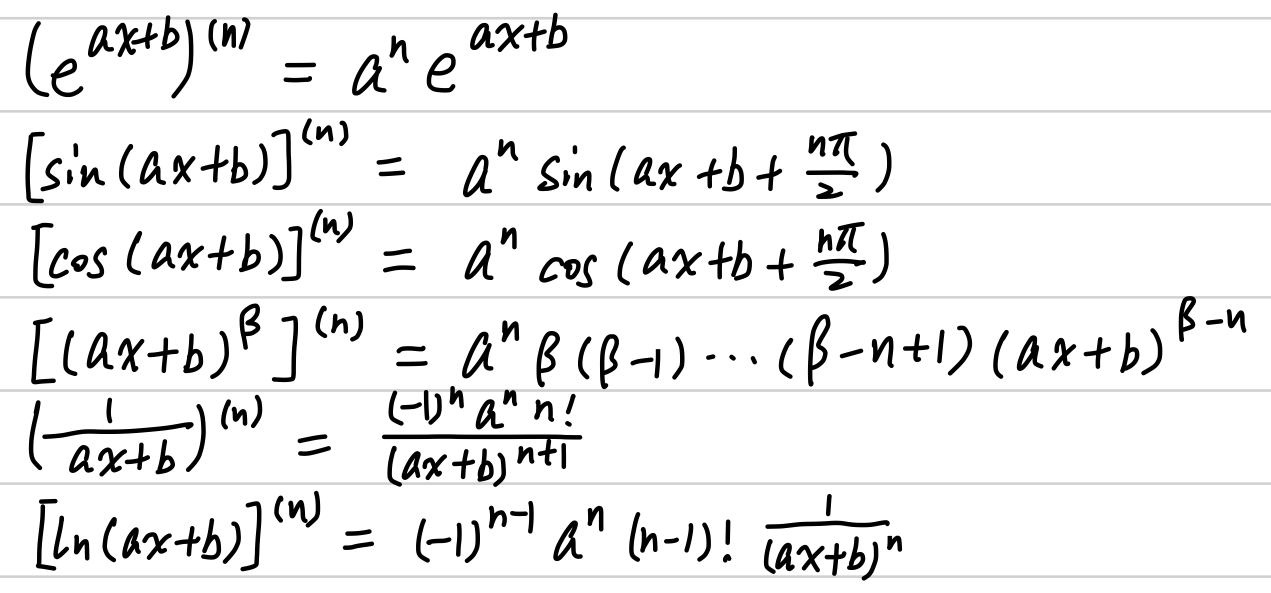 (e^{ax+b})^{(n)} = a^n e^{ax+b}
[sin(ax+b)]^{(n)} = a^n sin(ax+b+\frac{nπ}{2})
[cos(ax+b)]^{(n)} = a^n cos(ax+b+\frac{nπ}{2})
[(ax+b)^β]^{(n)} = a^n β(β-1)⋯(β-n+1)(ax+b)^{β-n}
(\frac{1}{ax+b})^{(n)} = \frac{(-1)^n a^n n!}{(ax+b)^{n+1}}
[ln(ax+b)]^{(n)} = (-1)^{n-1} a^n (n-1)! \frac{1}{(ax+b)^n}